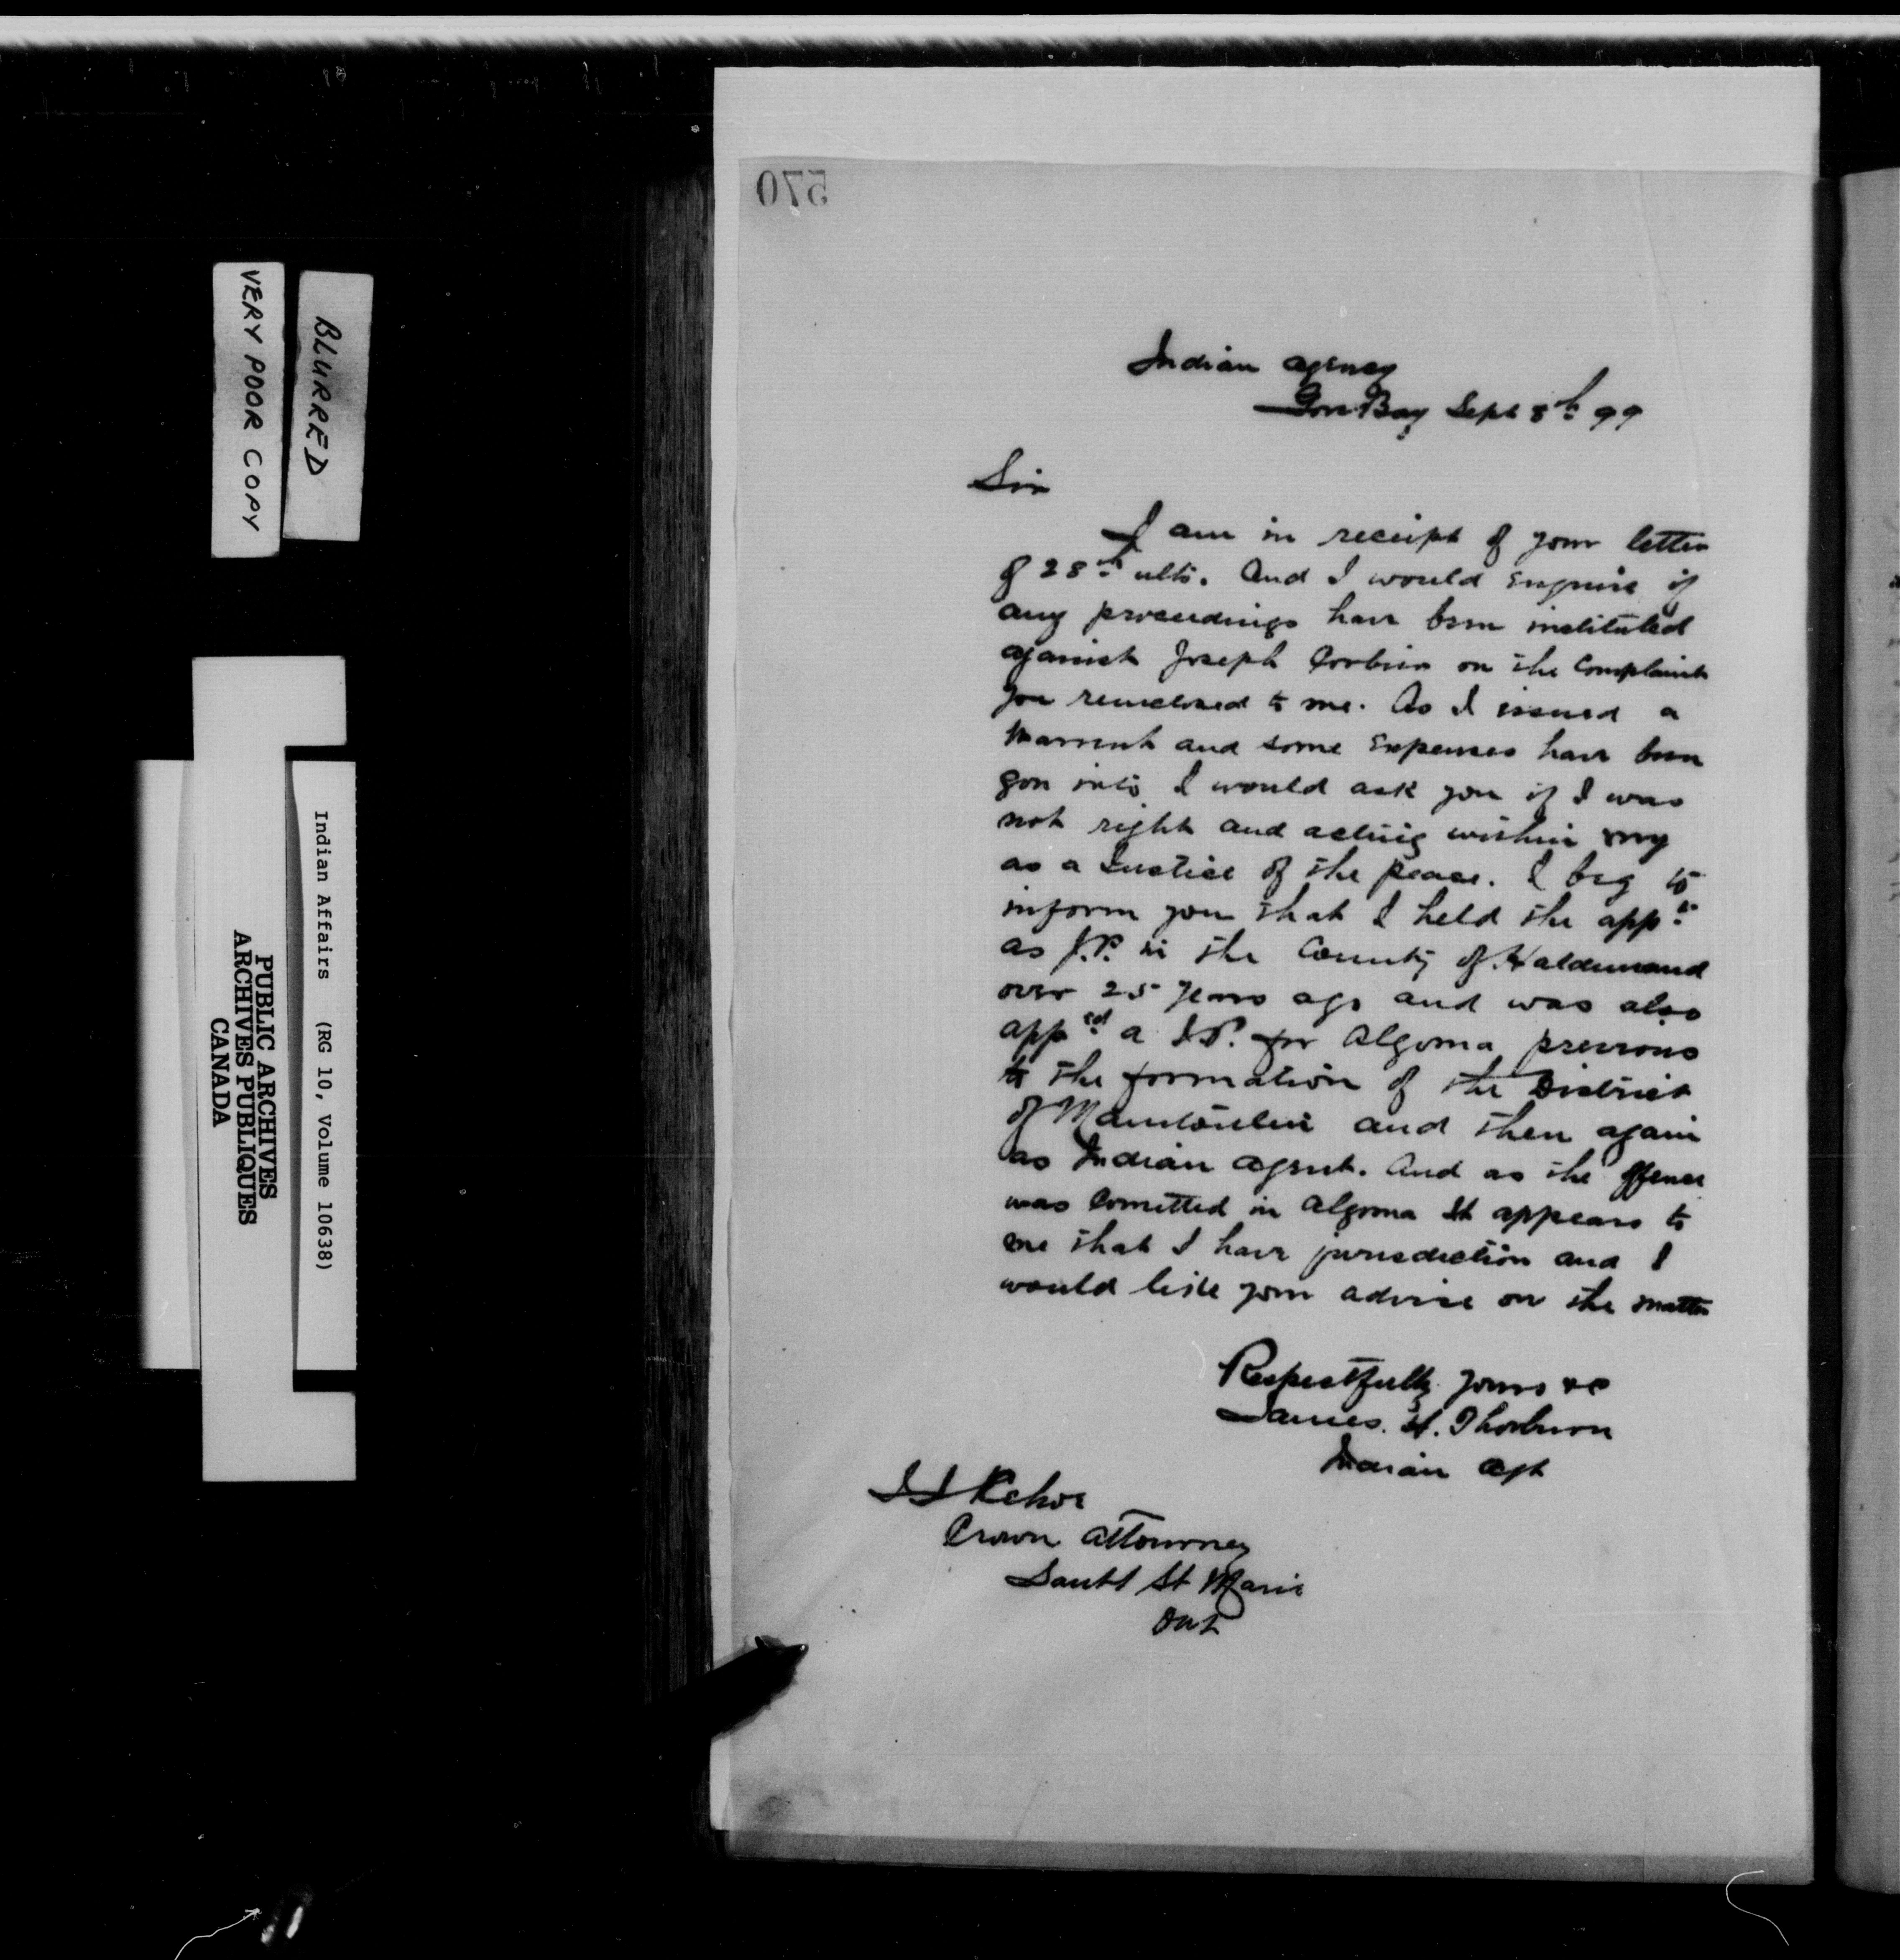 VERY POOR COPY
BLURRED
Indian Affairs (RG 10, Volume 10638)
PUBLIC ARCHIVES
ARCHIVES PUBLIQUES
CANADA
570
Indian agency
Gore Bay Sept 8th 99
Sir
I am in receipt of your letter
of 28th ulto. And I would enquire if
any proceedings have been instituted
against Joseph Corbier on the Complaint
you reinclosed to me. As I issued a
Warrent and some Expenses have been
gon into I would ask you if I was
not right and acting within my
as a Justice of the peace. I beg to
inform you that I held the appt
as J.P. in the County of Haldimand
over 25 years ago and was also
apped a J.P. for Algoma previous
to the formation of the District
of Manitoulin and then again
as Indian agent. And as the offence
was Comitted in Algoma It appears to
me that I have jurisdiction and I
would like your advice on the matter
Respectfully yours &c
James. H. Thorburn
Indian Agt
J J Kehoe
Crown Attourney
Sault St Marie
Ont